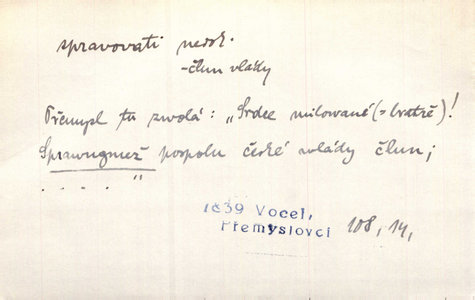 spravovati nedok.
-člun vlády
Přemysl tu zvolá: „Srdce milované (=bratře)!
Sprawugmež pospolu české vlády člun;
. . . . . "
1839 Vocel,
Přemyslovci 108, 14,